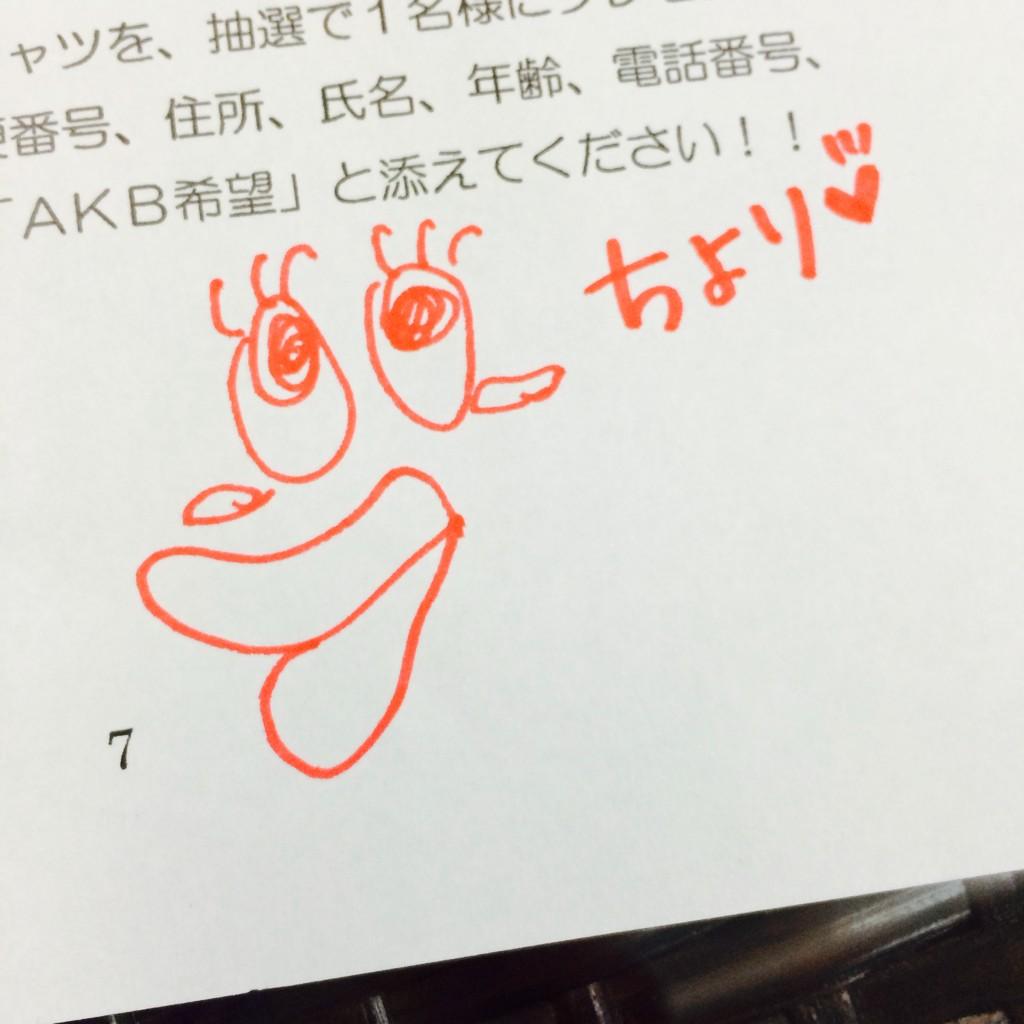 ャツを、抽選で1名様に
番号、住所、氏名、年齢、電話番号、
「AKB希望」と添えてください！！
ちより♥
7